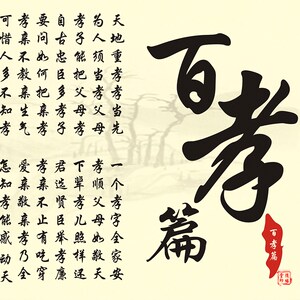 百孝篇
天地重孝孝当先
一个孝字全家安
为人须当孝父母
孝顺父母如敬天
孝子能把父母孝
下辈孝儿照样还
自古忠臣多孝子
君选贤臣举孝廉
要问如何把亲孝
孝亲不止在吃穿
孝亲不教亲生气
爱亲敬亲孝乃全
可惜人多不知孝
怎知孝能感动天
百孝篇